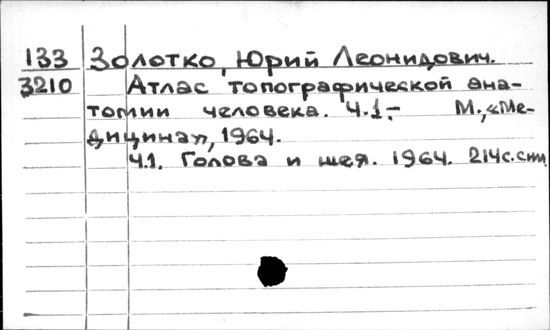 133 Золотко, Юрий Леонидович.
3210 Атлас топографической ана-
томии человека. Ч.1- М., «Ме-
дицина», 1964.
Ч.1. Голова и шея. 1964. 214с.